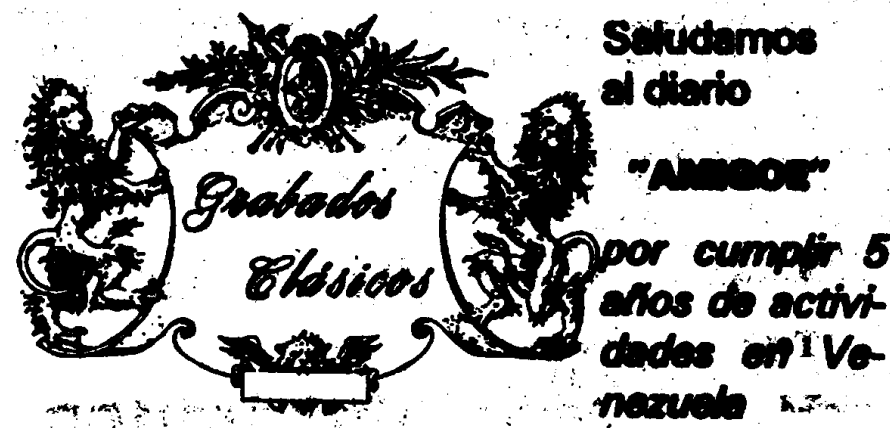 Grabados
Clásicos
Saludamos
al diario
"AMIGOE"
por cumplir 5
años de activi-
dades en Ve-
nezuela